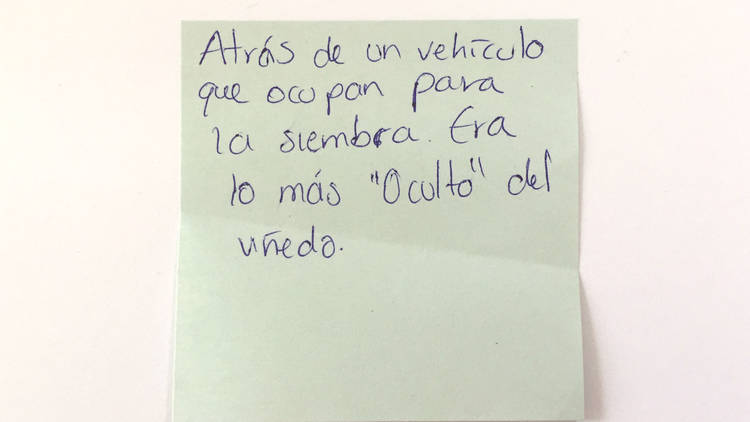 Atrás de un vehículo
que ocupan para
la siembra. Era
lo más "Oculto" del
viñedo.